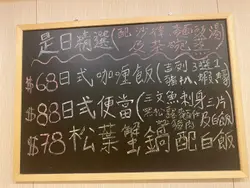 是日精選(配沙律、麵豉湯
及茶碗蒸)
$68日式咖喱飯(吉列3選1
豬扒、蝦、蠔
$88日式便當(三文魚刺身三片
及白飯
$78松葉蟹鍋配白飯